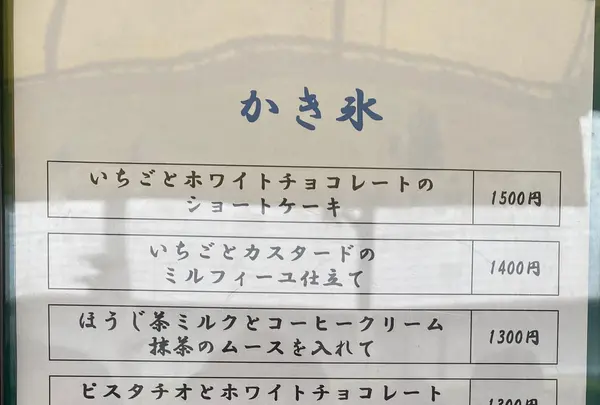 かき氷
いちごとホワイトチョコレートの
ショートケーキ
1500円
いちごとカスタードの
ミルフィーユ仕立て
1400円
ほうじ茶ミルクとコーヒークリーム
抹茶のムースを入れて
1300円
ピスタチオとホワイトチョコレート
1300円